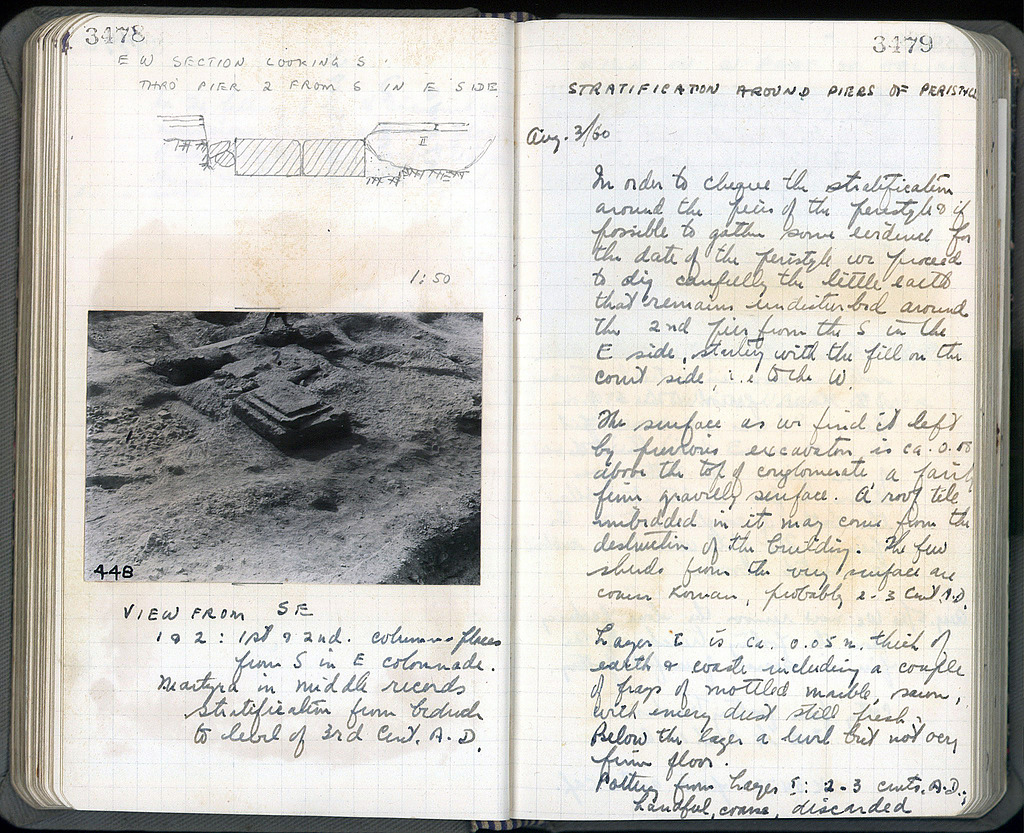 3478
E W SECTION LOOKING S.
THRO PIER 2 FROM S IN E SIDE
II
1:50
2
1
448
VIEW FROM SE
1 & 2: 1st & 2nd. column-places
from S in E colonnade.
Martyra in middle records
stratification from bedrock
to level of 3rd Cent. A.D.
3479
STRATIFICATION AROUND PIERS OF PERISTYLE
Aug. 3/60
In order to cheque the stratification
around the piers of the peristyle & if
possible to gather some evidence for
the date of the peristyle we proceed
to dig carefully the little earth
that remains undisturbed around
the 2nd pier from the S in the
E side, starting with the fill on the
court side, i.e. to the W.
The surface as we find it left
by previous excavation is ca. 0.08
above the top of conglomerate a fairly
firm gravelly surface. A roof tile
imbedded in it may come from the
destruction of the building. The few
sherds from the very surface are
coarse Roman, probably 2-3 Cent. A.D.
Layer I is ca. 0.05 m. thick of
earth & waste including a couple
of frags of mottled marble, sawn,
with emery dust still fresh.
Below the layer a level but not very
firm floor.
Pottery from Layer I: 2-3 cents. A.D.;
handful, coarse, discarded